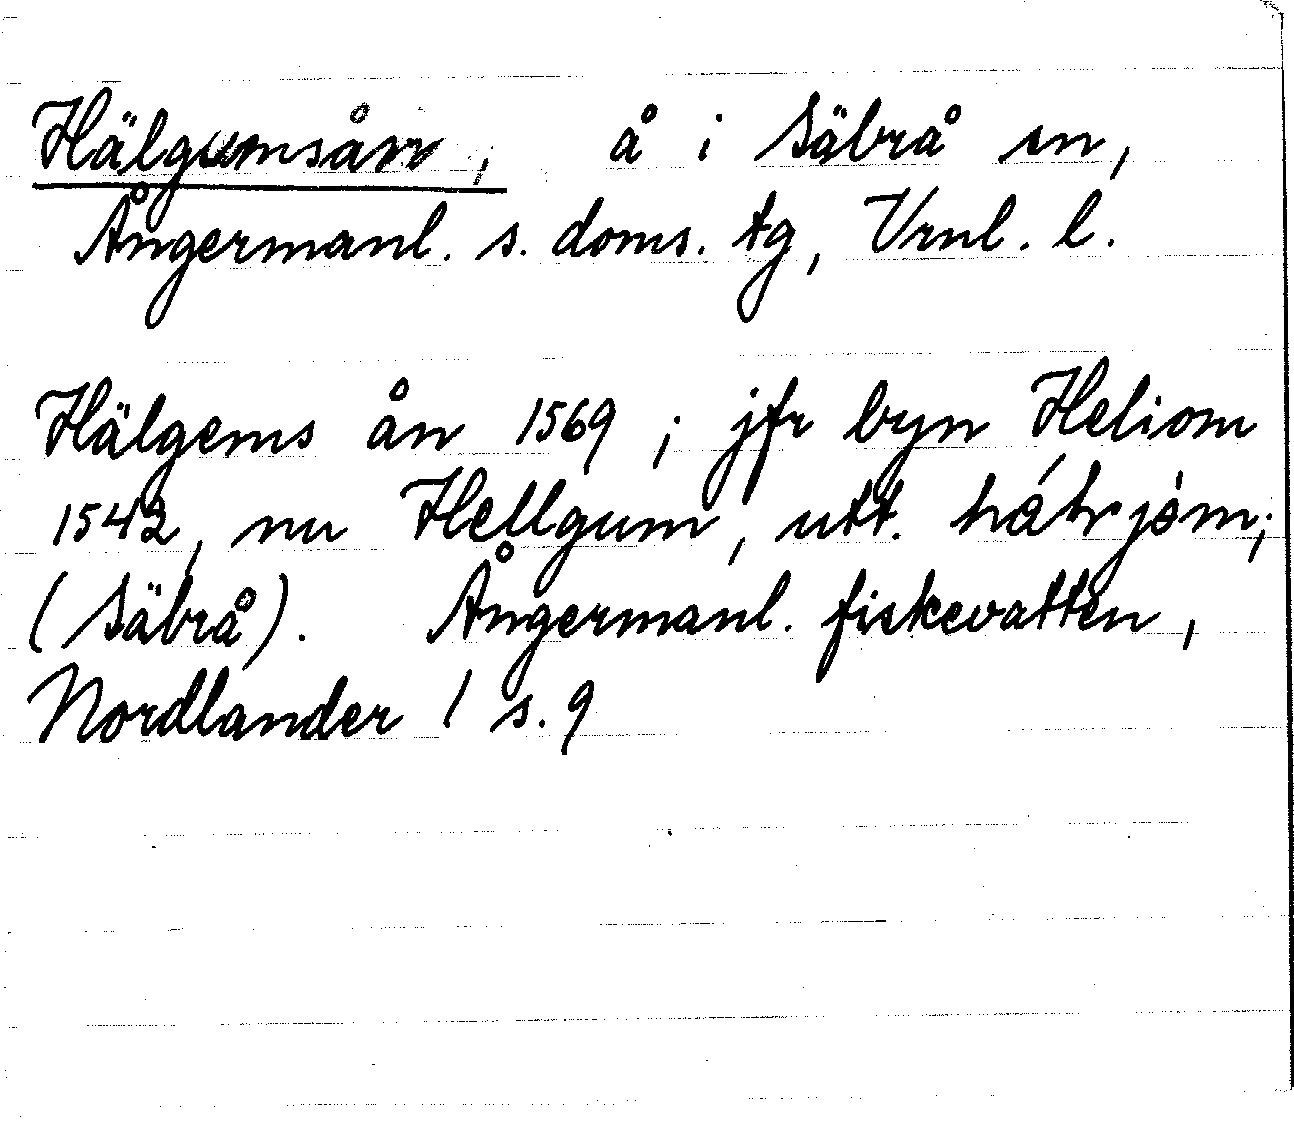 Hälgumsån, å i Säbrå sn,
Ångermanl. s. doms. tg, Vrnl. l.
Hälgems ån 1569; jfr byn Heliom
1542, nu Hellgum, utt.
(Säbrå). Ångermanl. fiskevatten,
Nordlander 1 s. 9